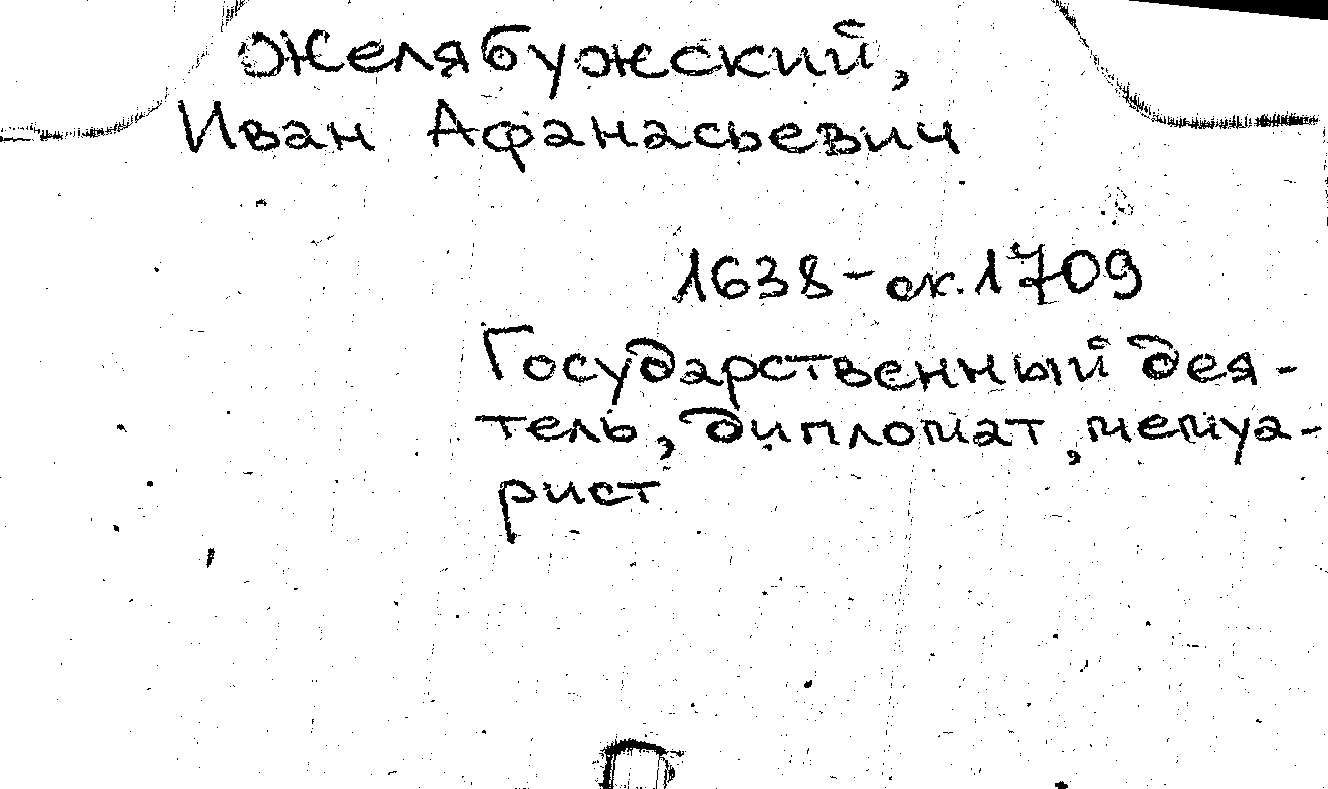 Желябужский,
Иван Афанасьевич
1638 - ок. 1709
Государственный дея-
тель, дипломат, мемуа-
рист